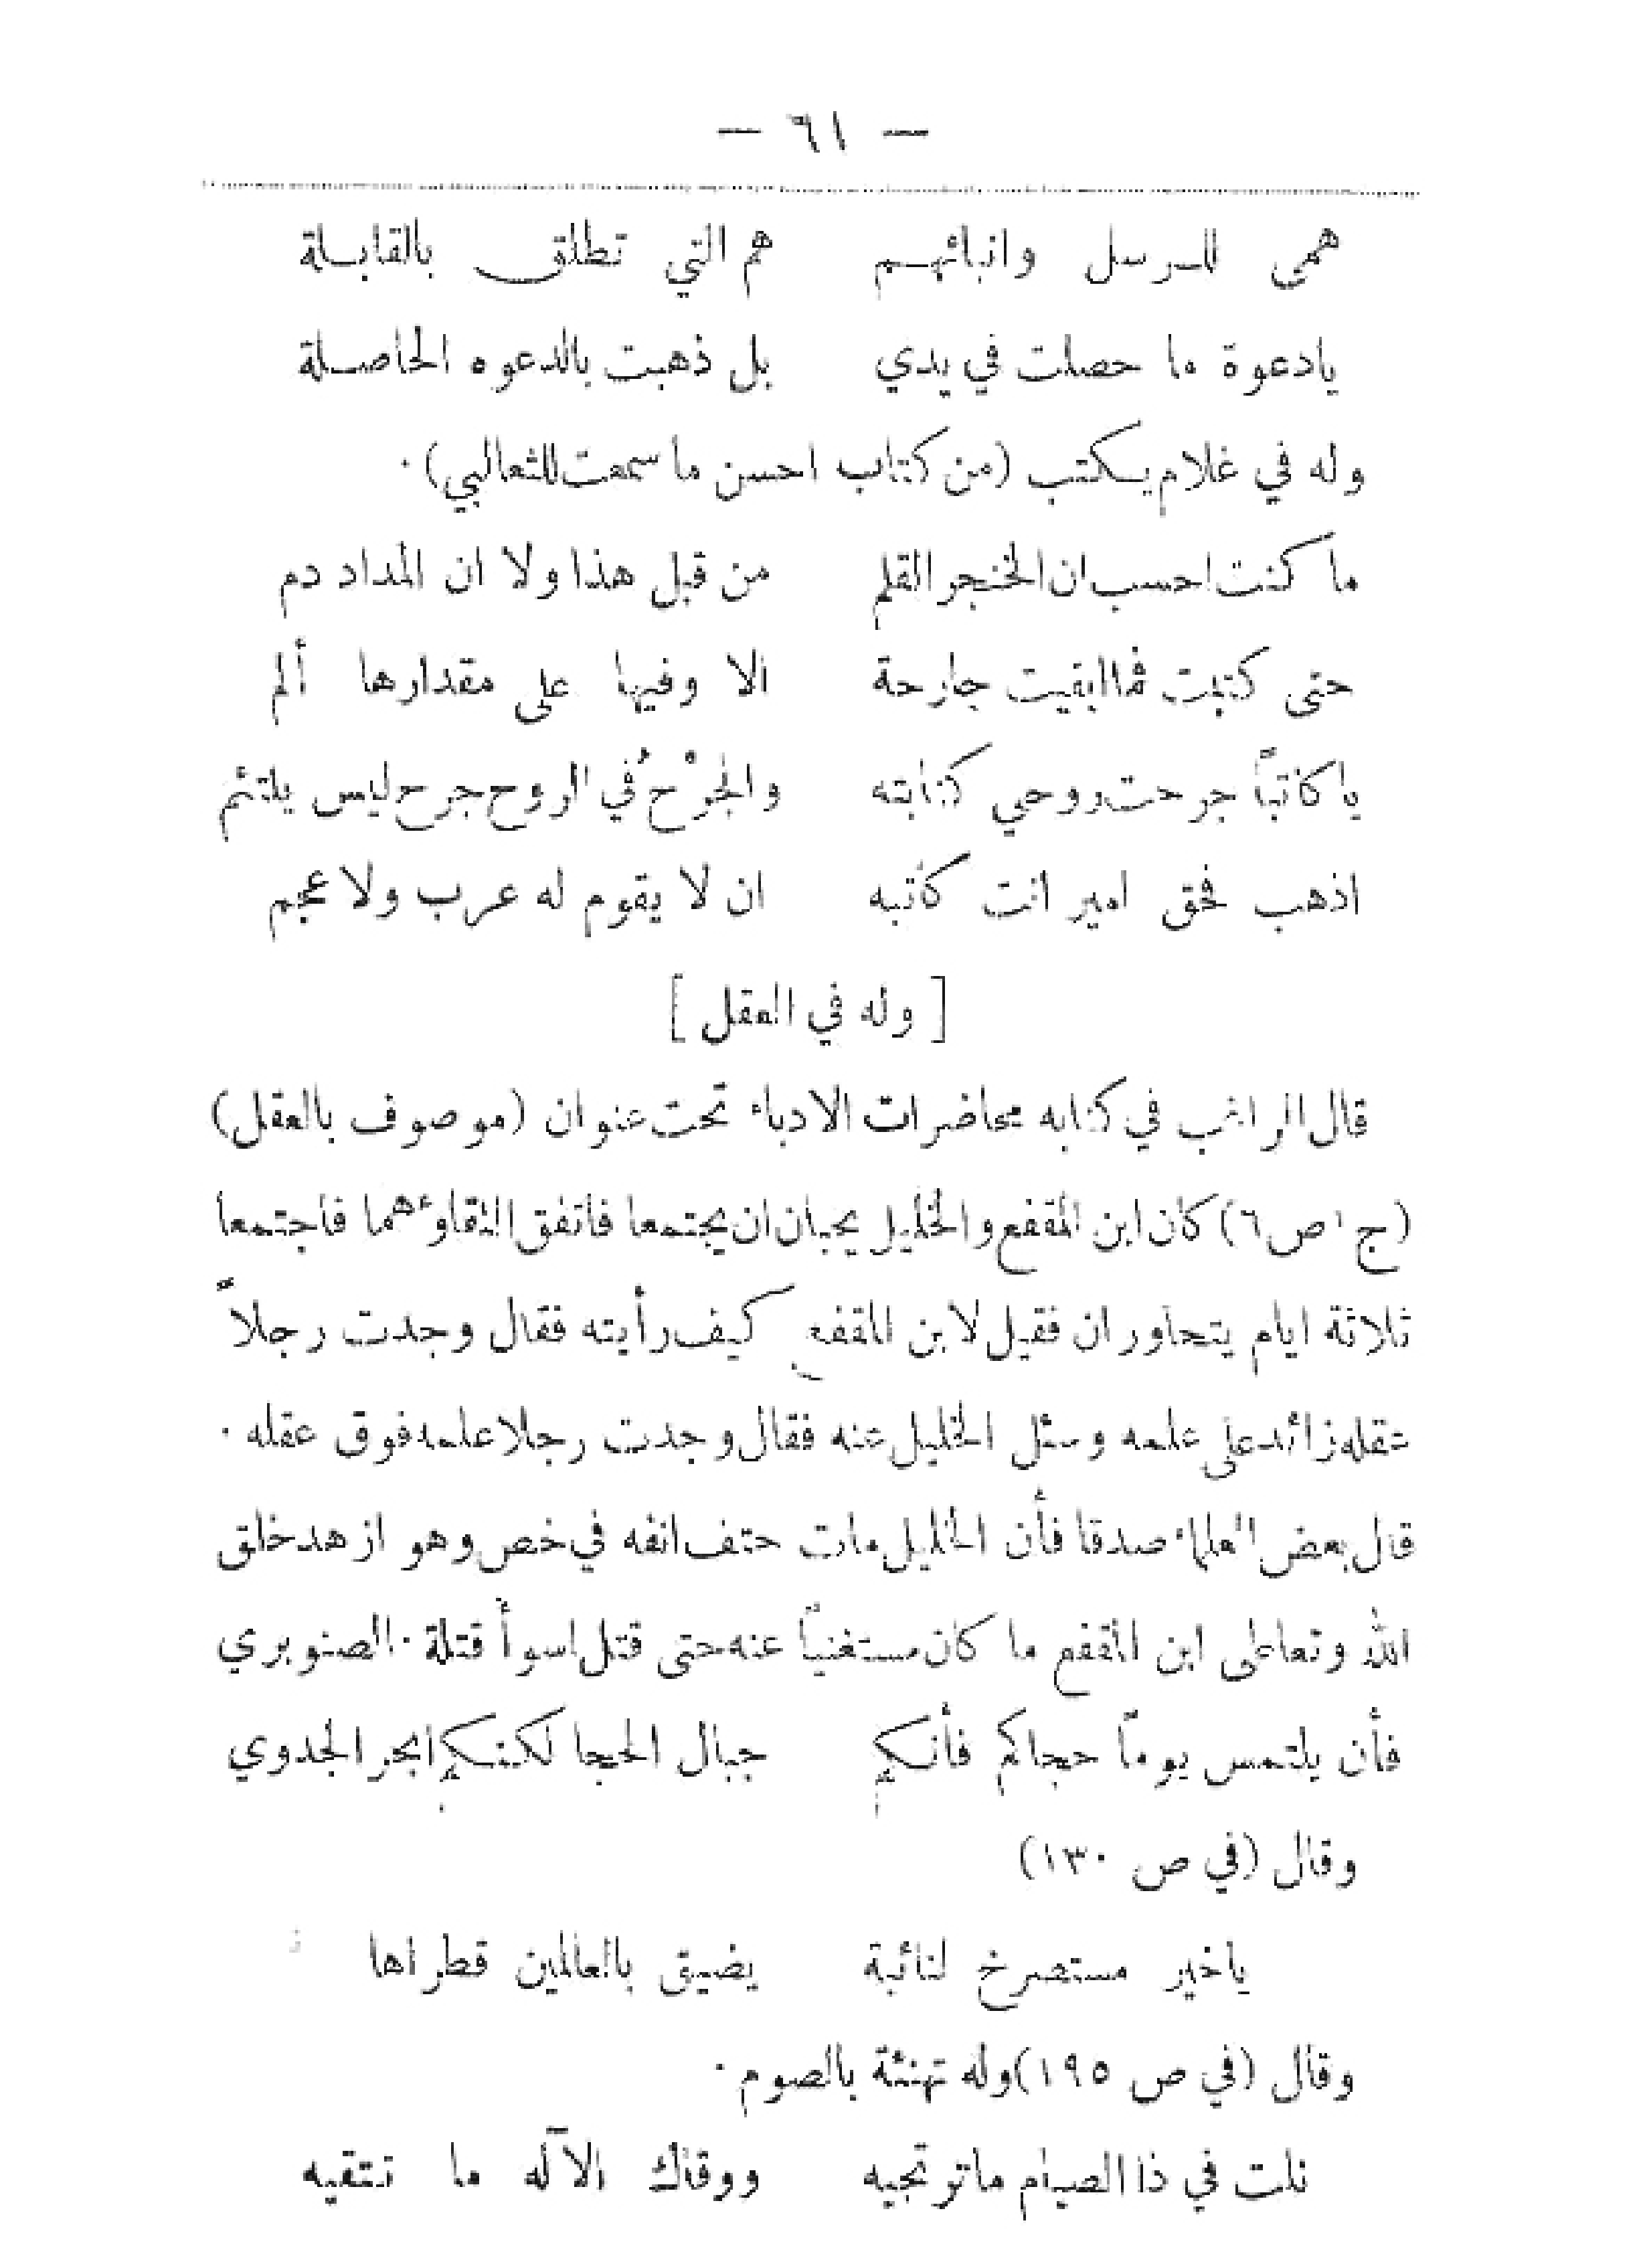 — ٦١ —
همي للرسل وانبائهم هم التي تطلق بالقابلة
يادعوة ما حصلت في يدي بل ذهبت بالدعوه الحاصلة
وله في غلام يكتب (من كتاب احسن ما سمعت للثعالبي) ·
ما كنت احسب ان الخنجر القلم من قبل هذا ولا ان المداد دم
حتى كتبت فما ابقيت جارحة الا وفيها على مقدارها ألم
يا كاتباً جرحت روحي كتابته والجرْحُ في الروح جرح ليس يلتئم
اذهب فحق امير انت كاتبه ان لا يقوم له عرب ولا عجم
[ وله في العقل ]
قال الراغب في كتابه محاضرات الادباء تحت عنوان (موصوف بالعقل)
(ج ١ ص ٦) كان ابن المقفع والخليل يحبان ان يجتمعا فاتفق التقاؤهما فاجتمعا
ثلاثة ايام يتحاوران فقيل لابن المقفع كيف رأيته فقال وجدت رجلاً
عقله زائد على علمه وسئل الخليل عنه فقال وجدت رجلا علمه فوق عقله ·
قال بعض العلماء صدقا فأن الخليل مات حتف انفه في خص وهو ازهد خلق
الله وتعاطى ابن المقفع ما كان مستغنياً عنه حتى قتل اسوأ قتلة · الصنوبري
فأن يلتمس يوماً حجاكم فأنكم جبال الحجا لكنكم ابحر الجدوي
وقال (في ص ١٣٠)
ياخير مستصرخ لنائبة يضيق بالعالمين قطراها
وقال (في ص ١٩٥) وله تهنئة بالصوم ·
نلت في ذا الصيام ماترتجيه ووقاك الآله ما تتقيه